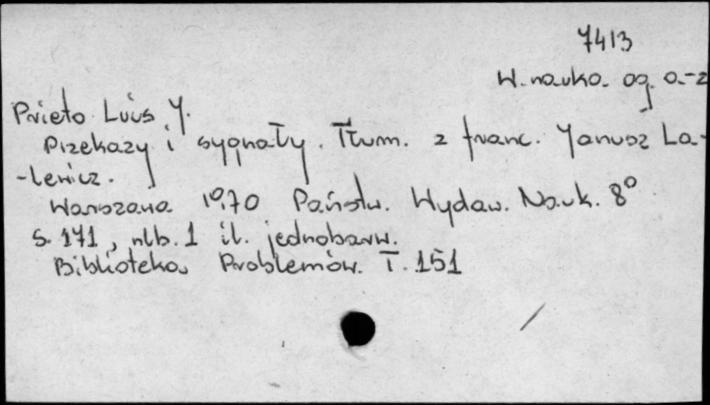 7413
W. nauka. og. a.-z
Prieto Luis J.
Przekazy i sygnały. Tłum. z franc. Janusz La-
-lewicz.
Warszawa 1970 Państw. Wydaw. Nauk. 8°
s. 171, nlb. 1 il. jednobarw.
Biblioteka Problemów. T. 151